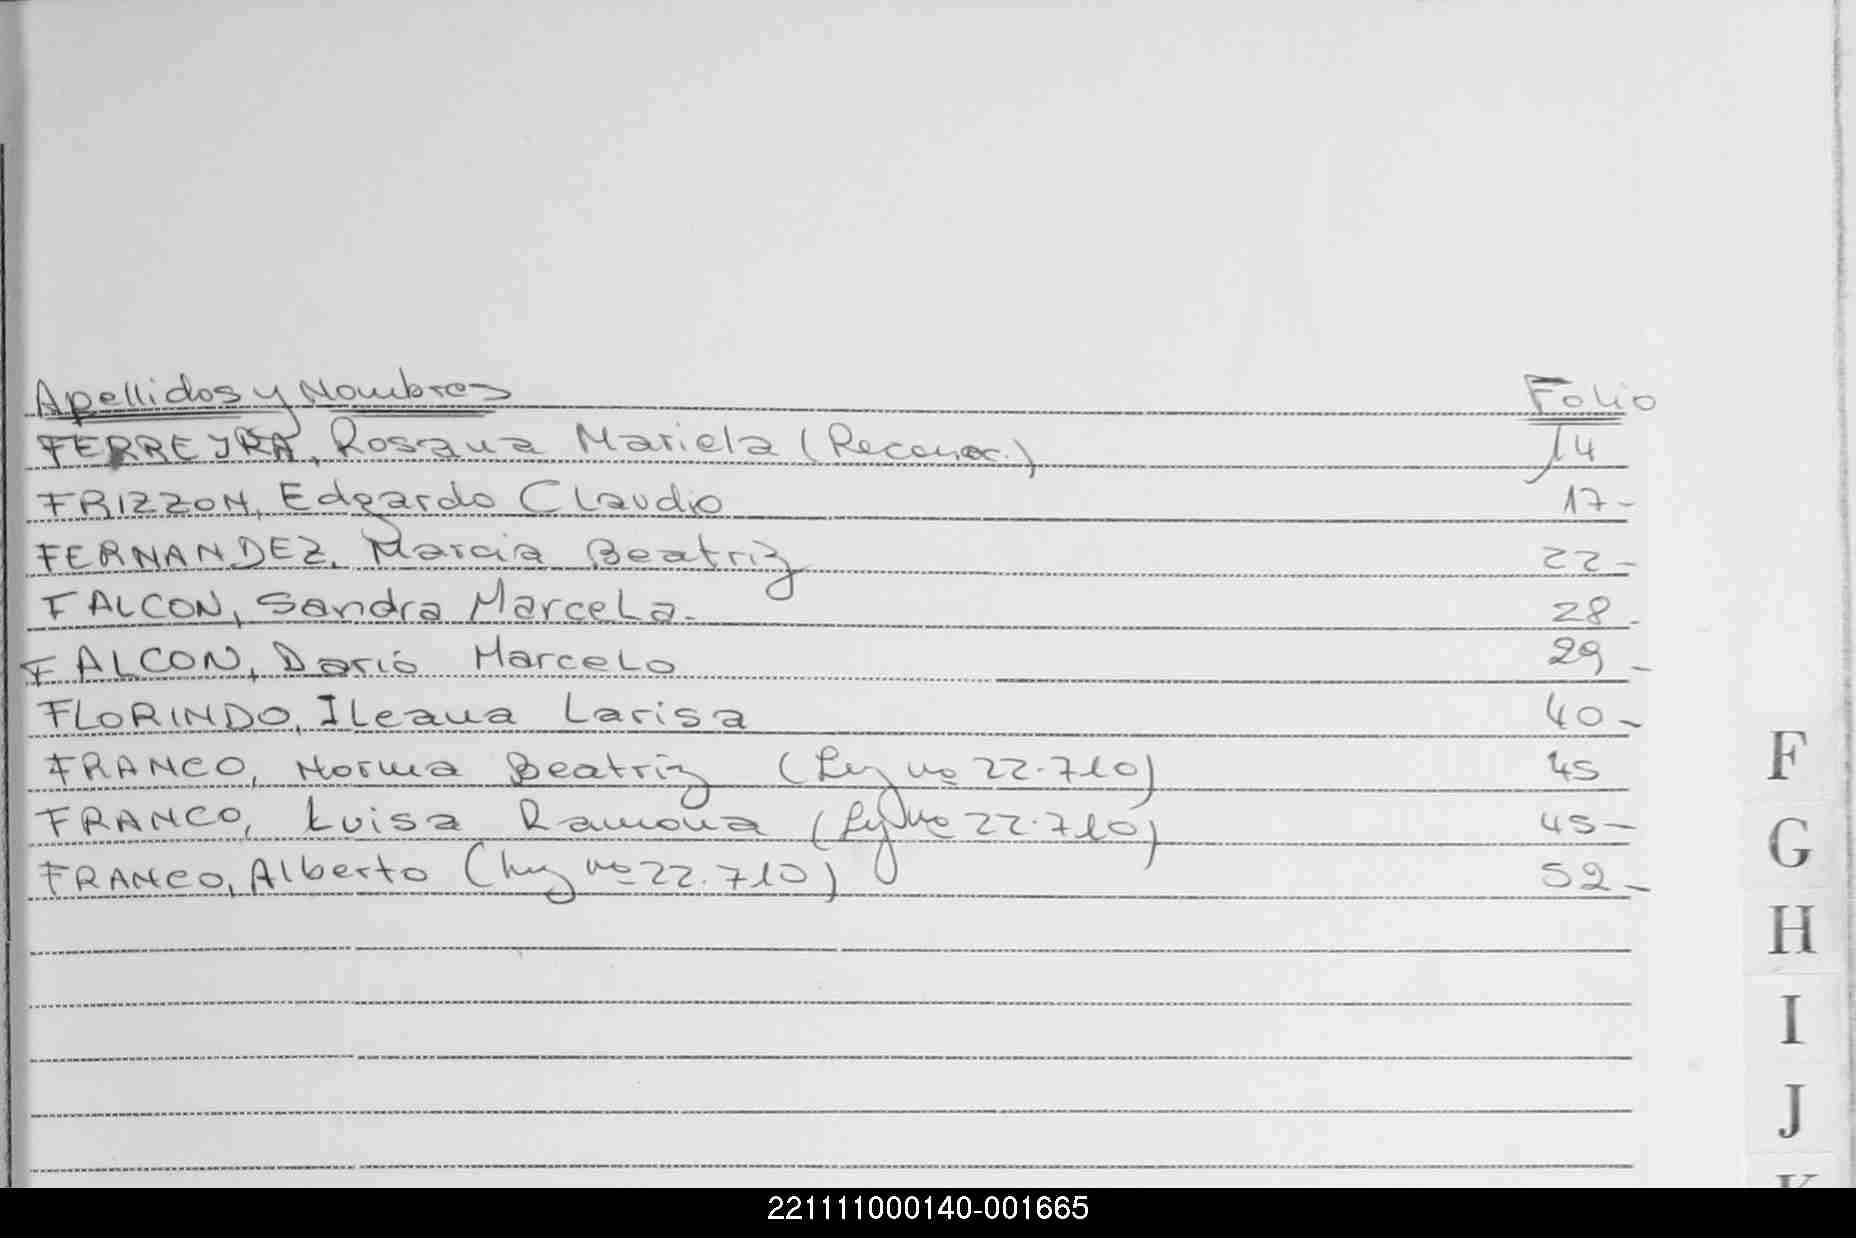 Apellidos y Nombres Folio
FERREJRA, Rosana Mariela (Reconoc.) 14
FRIZZON, Edgardo Claudio 17-
FERNANDEZ, Marcia Beatriz 22-
FALCON, Sandra Marcela. 28.
FALCON, Darío Marcelo 29-
FLORINDO, Ileana Larisa 40-
FRANCO, Norma Beatriz (Ley nº 22.710) 45
FRANCO, Luisa Ramona (Ley Nº 22.710) 45-
FRANCO, Alberto (Ley nº 22.710) 52-
F
G
H
I
J
K
221111000140-001665